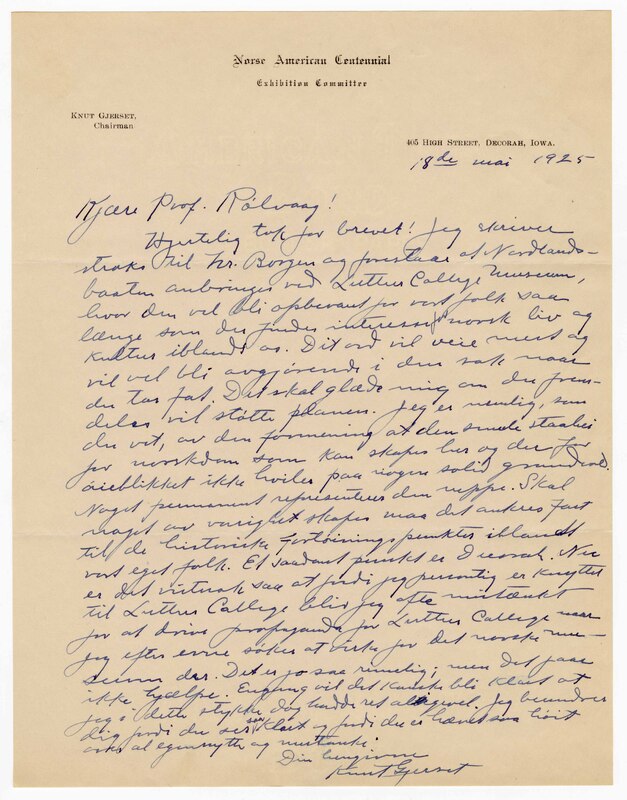 Norse American Centennial
Exhibition Committee
KNUT GJERSET,
Chairman
405 HIGH STREET, DECORAH, IOWA.
18de mai 1925
Kjære Prof. Rölvaag!
Hjertelig tak for brevet! Jeg skriver
straks til hr. Borgen og foreslaar at Nordlands-
baaten anbringes ved Luther College Museum,
hvor den vil bli opbevart for vort folk saa
længe som der findes interesse for norsk liv og
kultur iblandt os. Dit ord vil veie mest og
vil vel bli avgjørende i den sak naar
du tar fat. Det skal glæde mig om du frem-
deles vil støtte planen. Jeg er nemlig, som
du vet, av den formening at den smule
for norskdom som kan skapes her og der for
øieblikket ikke hviler paa nogen solid grundvold.
Noget permanent representerer den neppe. Skal
noget av varighet skapes maa det ankres fast
til de historiske iblandt
vort eget folk. Et saadant punkt er Decorah. Nu
er det vistnok saa at fordi jeg personlig er knyttet
til Luther College blir jeg ofte mistænkt
for at drive propaganda for Luther College naar
jeg efter evne søker at virke for det norske mu-
seum der. Det er jo saa rimelig; men det faar
ikke hjælpe. Engang vil det kanske bli klart at
jeg i dette stykke dog hadde ret allikevel. Jeg beundrer
dig fordi du ser saa klart og fordi du er hævet saa høit
over al egennytte og mistanke.
Din hengivne
Knut Gjerset